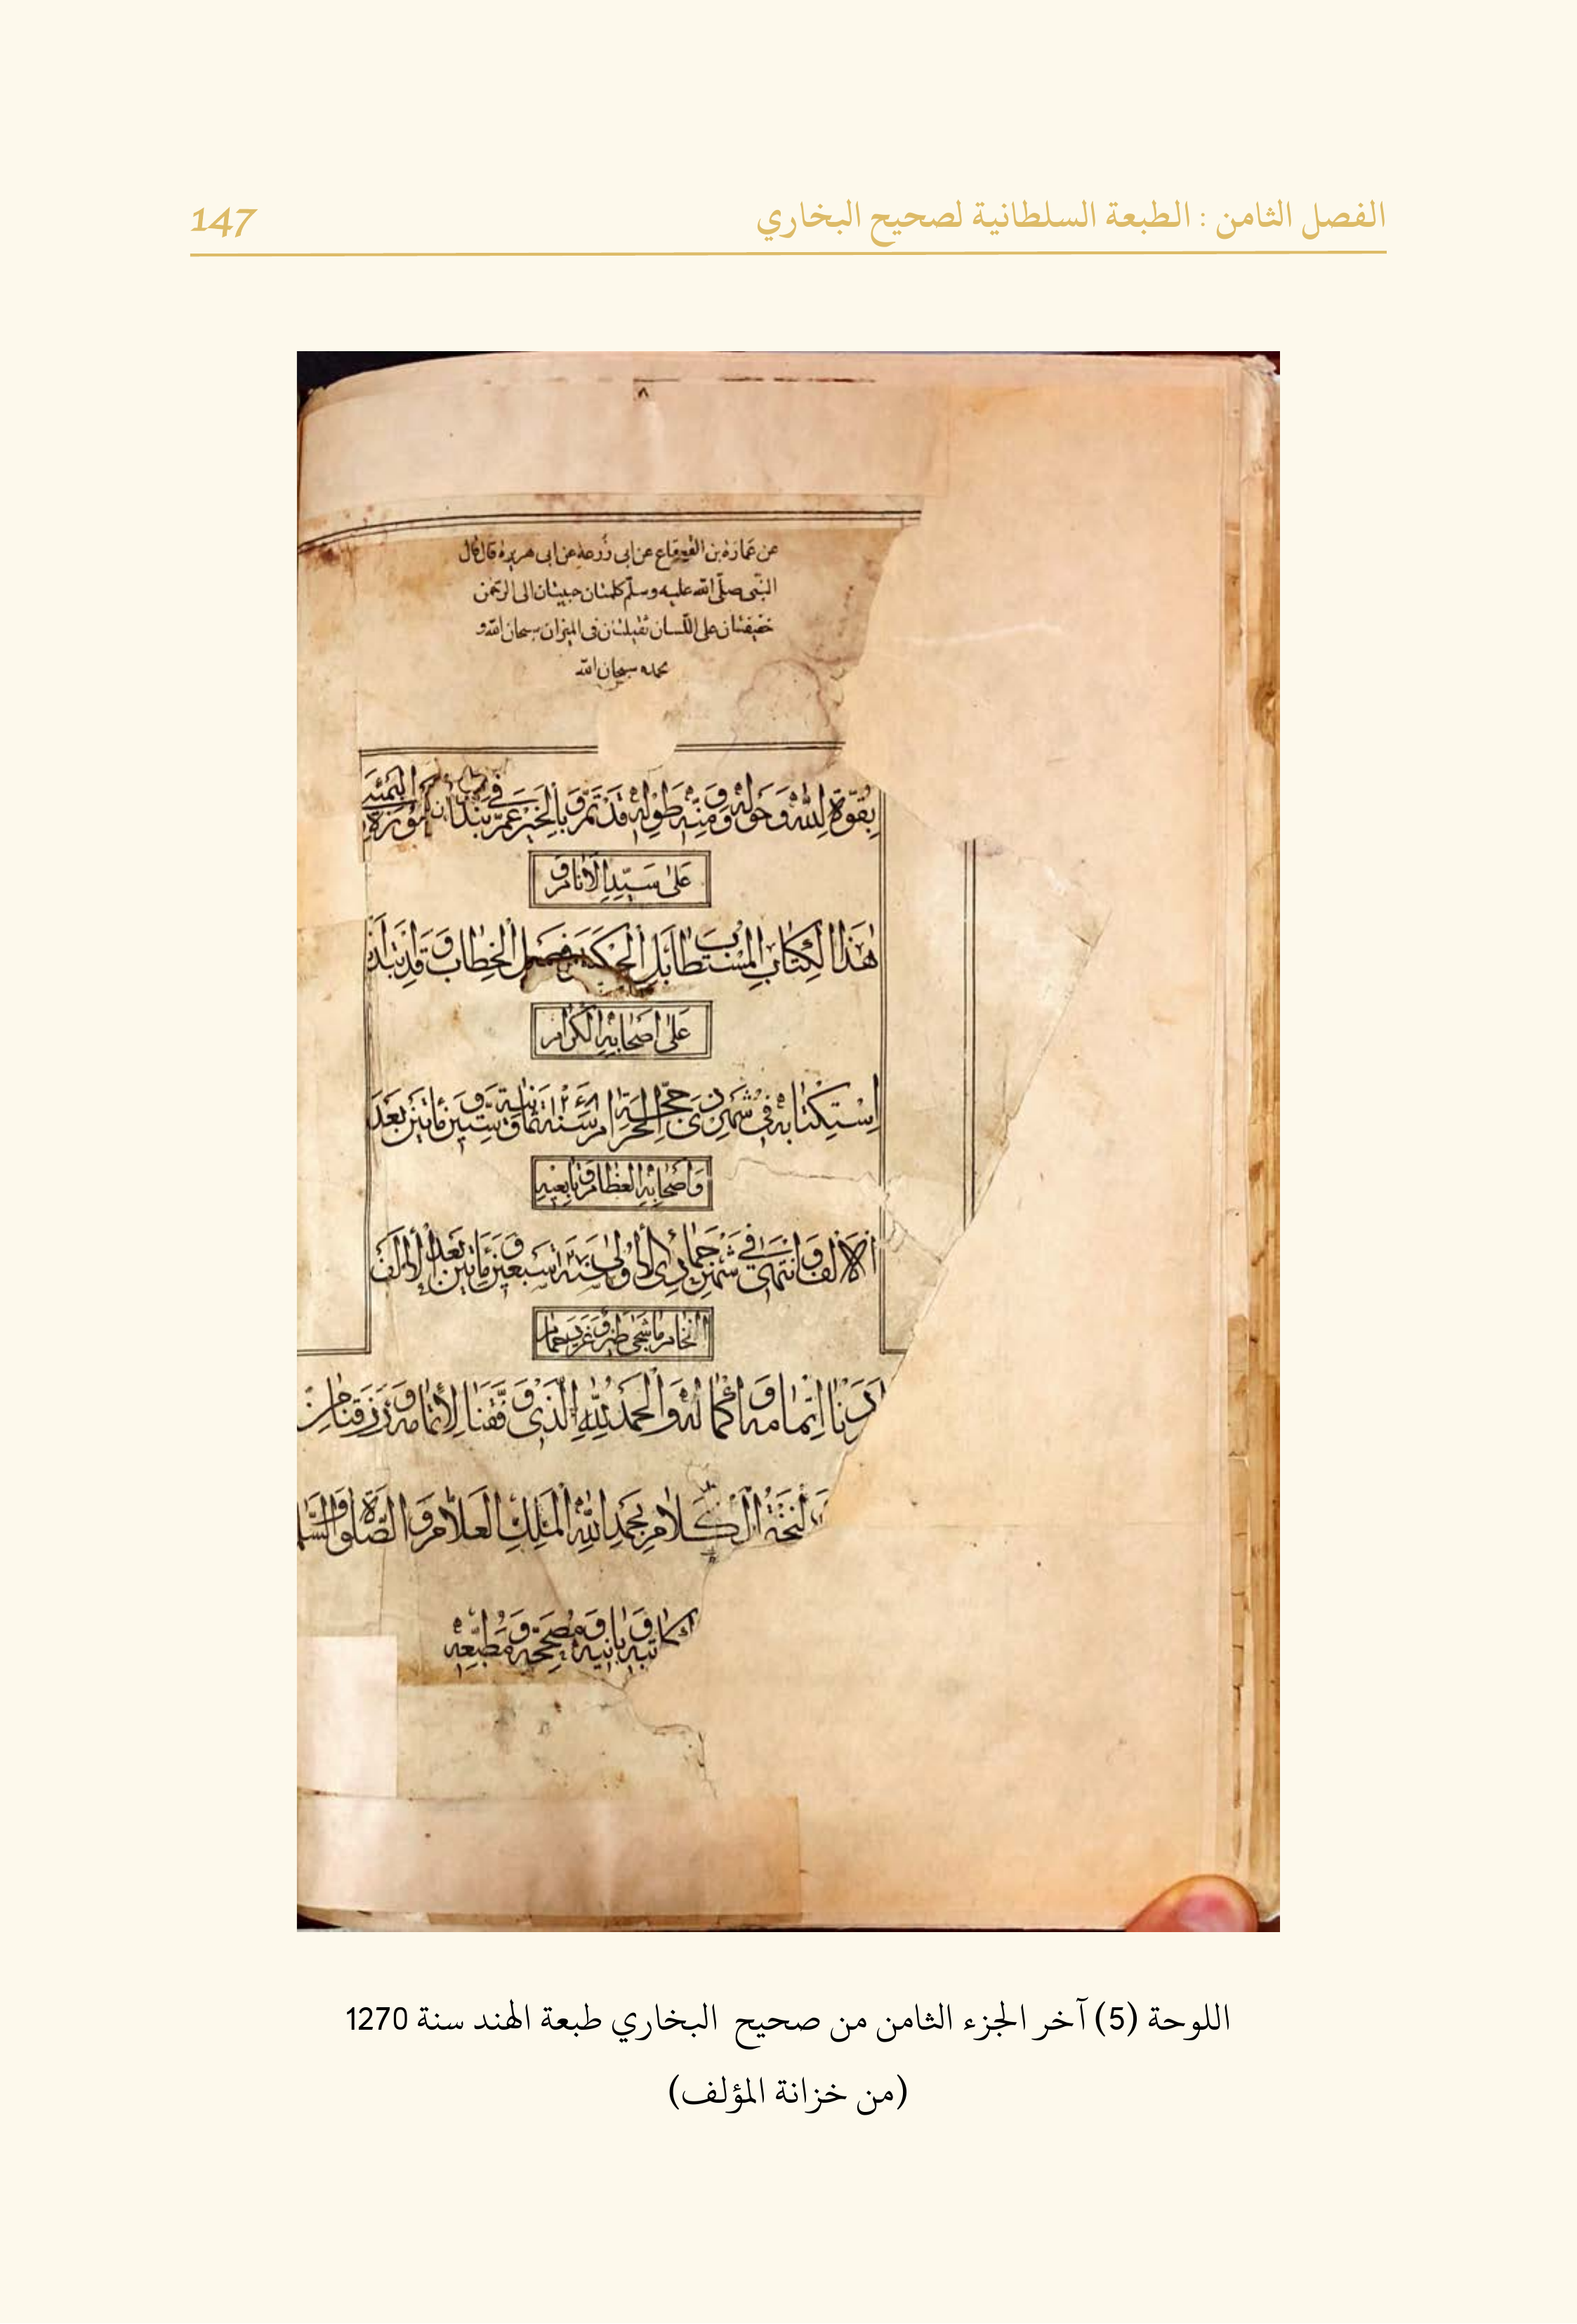 الفصل الثامن : الطبعة السلطانية لصحيح البخاري
147
٨
عن عمارة بن القعقاع عن ابى زُرعة عن ابى هريرة قال قال
النّبى صلّى الله عليه وسلّم كلمتان حبيبتان الى الرّحمن
خفيفتان على اللّسان ثقيلتان فى الميزان سبحان الله و
بحمده سبحان الله
بِقُوَّةِ لِلّٰهِ وَحَوْلِهٖ وَمِنِّهٖ وَطَوْلِهٖ قَدْ تَمَّ وَبِالْخَيْرِ عَمَّ فِي بَنْدَرِ
عَلىٰ سَيِّدِ الْاَنَامِ وَ
هٰذَا الْكِتَابِ الْمُسْتَطَابِ بَلِ الْحِكْمَةِ وَفَصْلِ الْخِطَابِ وَقَدِ
عَلىٰ اَصْحَابِهِ الْكِرَامِ
اِسْتِكْتَابِهٖ فِي شَهْرِ ذِي حَجَّةِ الْحَرَامِ سَنَةِ ١٢٦٨ ثَمَانِيَةٍ وَسِتِّيْنَ وَمِأَتَيْنِ بَعْدَ
وَاَصْحَابِهِ الْعِظَامِ وَتَابِعِيْهِ
الْاَلْفِ وَانْتَهٰى فِي شَهْرِ جَمَادِي الْاُوْلىٰ سَنَةِ ١٢٧٠ سَبْعِيْنَ وَمِأَتَيْنِ بَعْدَ الْاَلْفِ
مَا شَجٰى طَيْرٌ وَغَرَّدَ حَمَامٌ
اَرَدْنَا اِتْمَامَهٗ وَاِكْمَالَهٗ وَالْحَمْدُ لِلّٰهِ الَّذِيْ وَفَّقَنَا لِاِتْمَامِهٖ وَرَزَقَنَا مِنْ
الْكَلَامِ بِحَمْدِ اللّٰهِ الْمَلِكِ الْعَلَّامِ وَالصَّلٰوةُ وَالسَّلَا
كَاتِبِهٖ وَبَانِيْهِ وَمُصَحِّحِهٖ وَمُطَبِّعِهٖ
اللوحة (5) آخر الجزء الثامن من صحيح البخاري طبعة الهند سنة 1270
(من خزانة المؤلف)